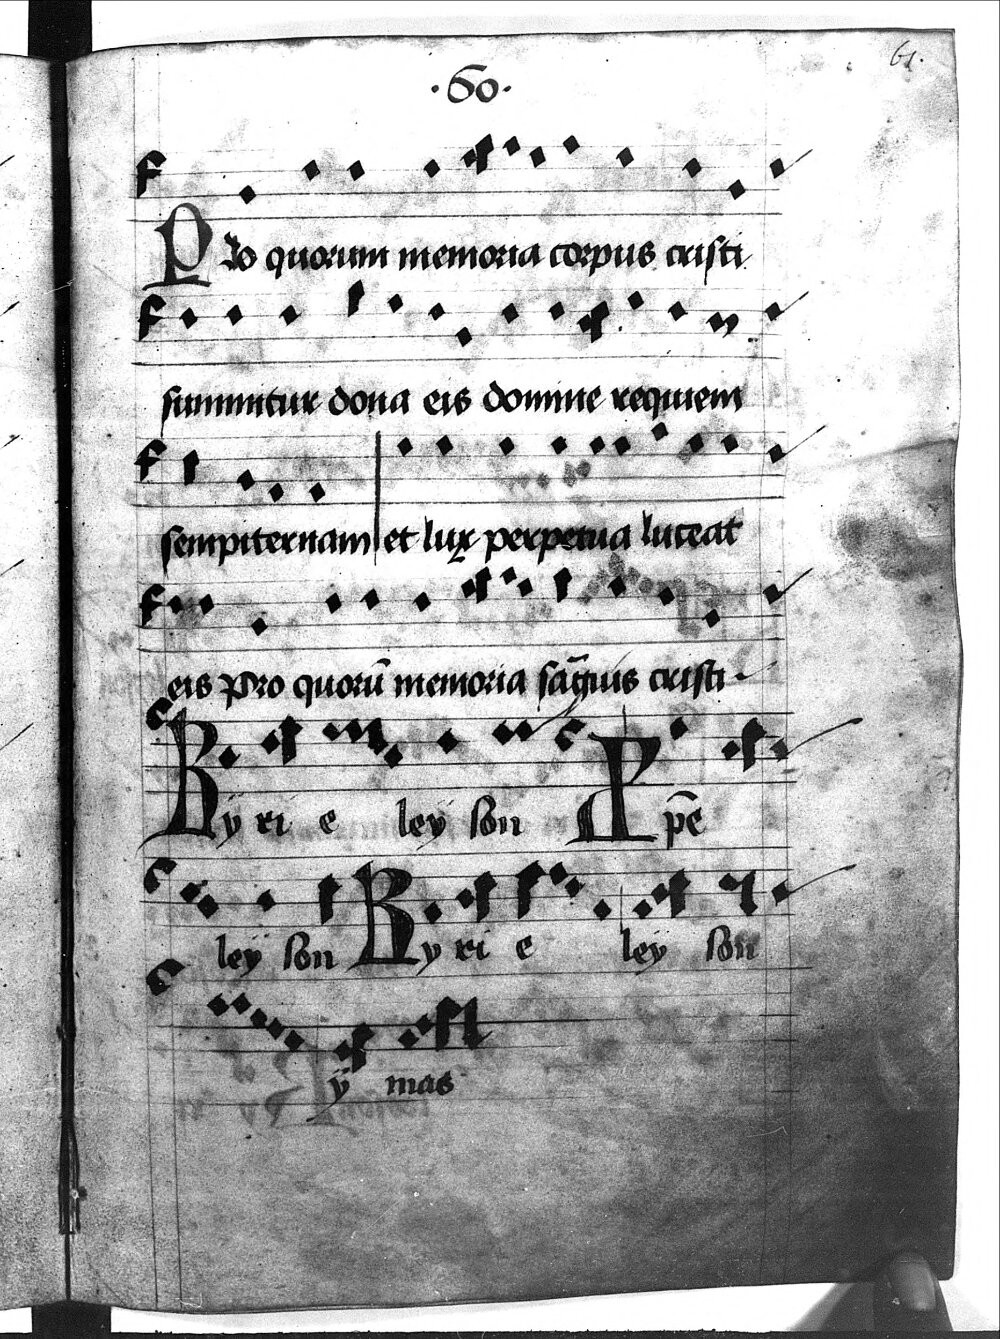 ·60·
61.
Pro quorum memoria corpus cristi
summitur dona eis domine requiem
sempiternam et lux perpetua luceat
eis Pro quorū memoria sāguis cristi
Kÿ ri e leÿ son Xpē
leÿ son Ky ri e ley son
ÿ mas